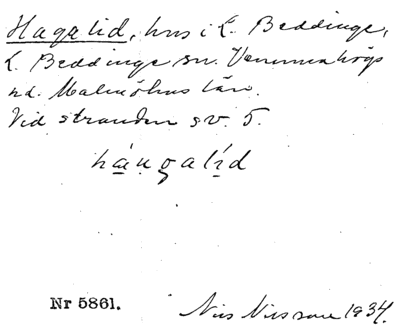 Hagalid, hus i L. Beddinge,
L. Beddinge sn. Vemmenhögs
hd. Malmöhus län.
Vid stranden sv. 5.
háu̯galíd
Nr 5861.
Nils Nilsson 1934.